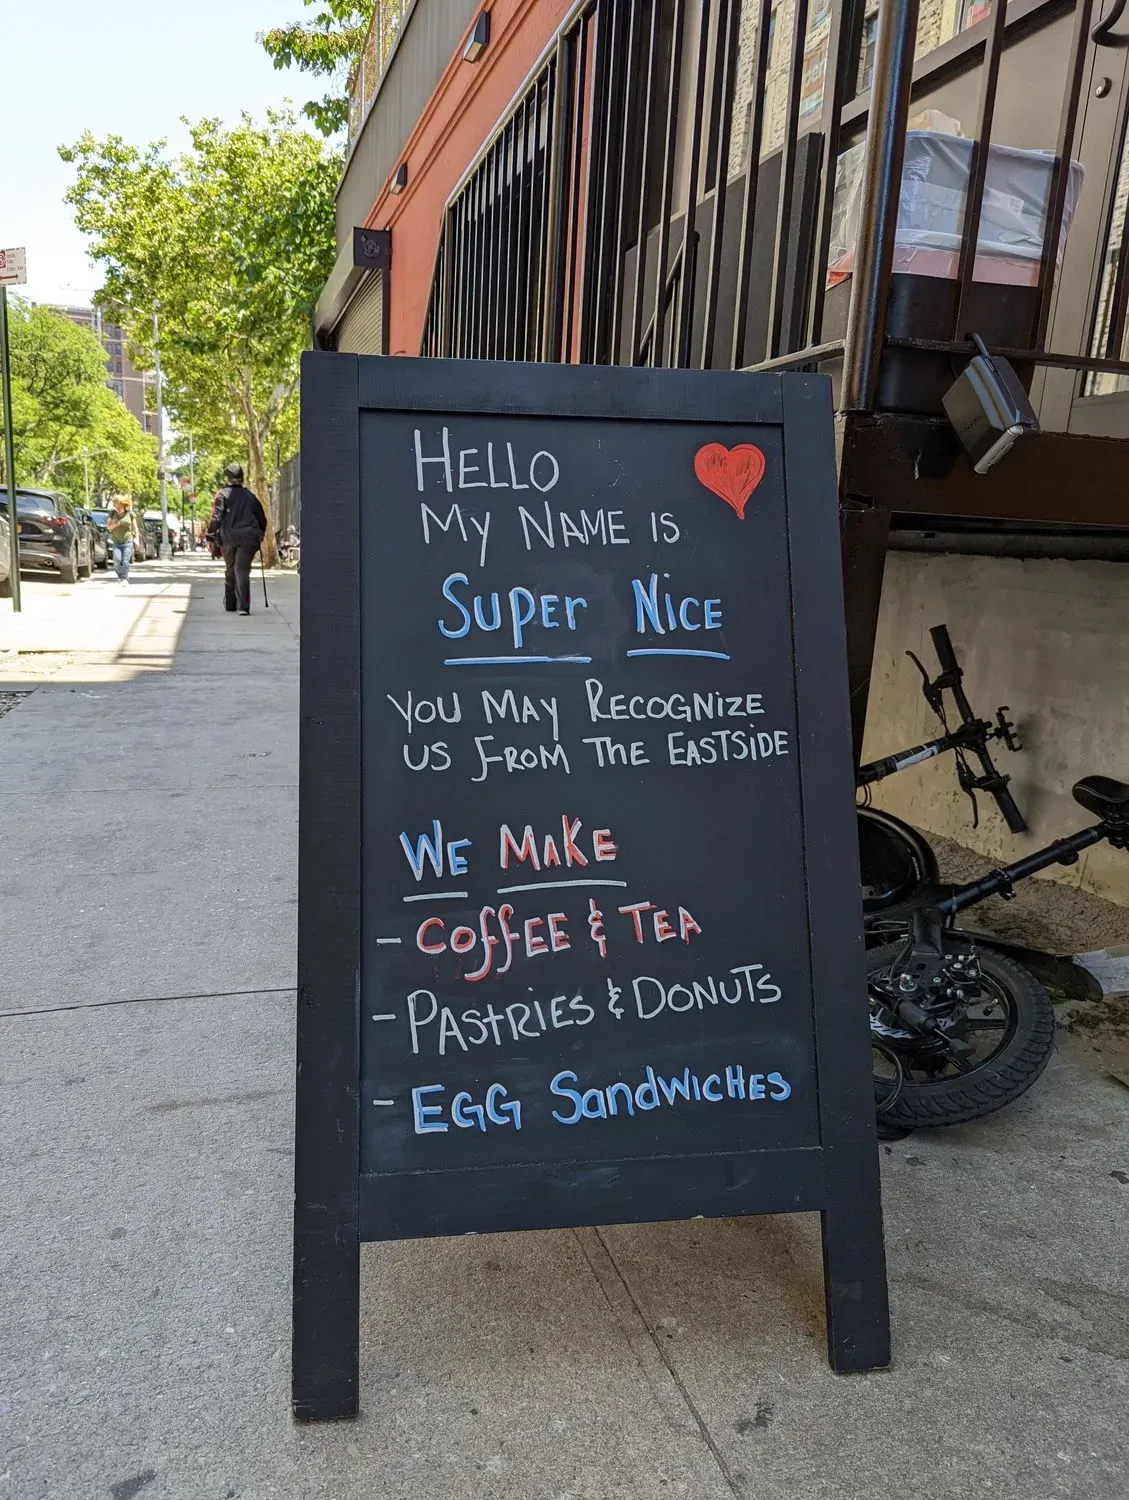 HELLO
MY NAME IS
SUPER NICE
YOU MAY RECOGNIZE
US FROM THE EASTSIDE
WE MAKE
- COFFEE & TEA
- PASTRIES & DONUTS
- EGG SANDWICHES